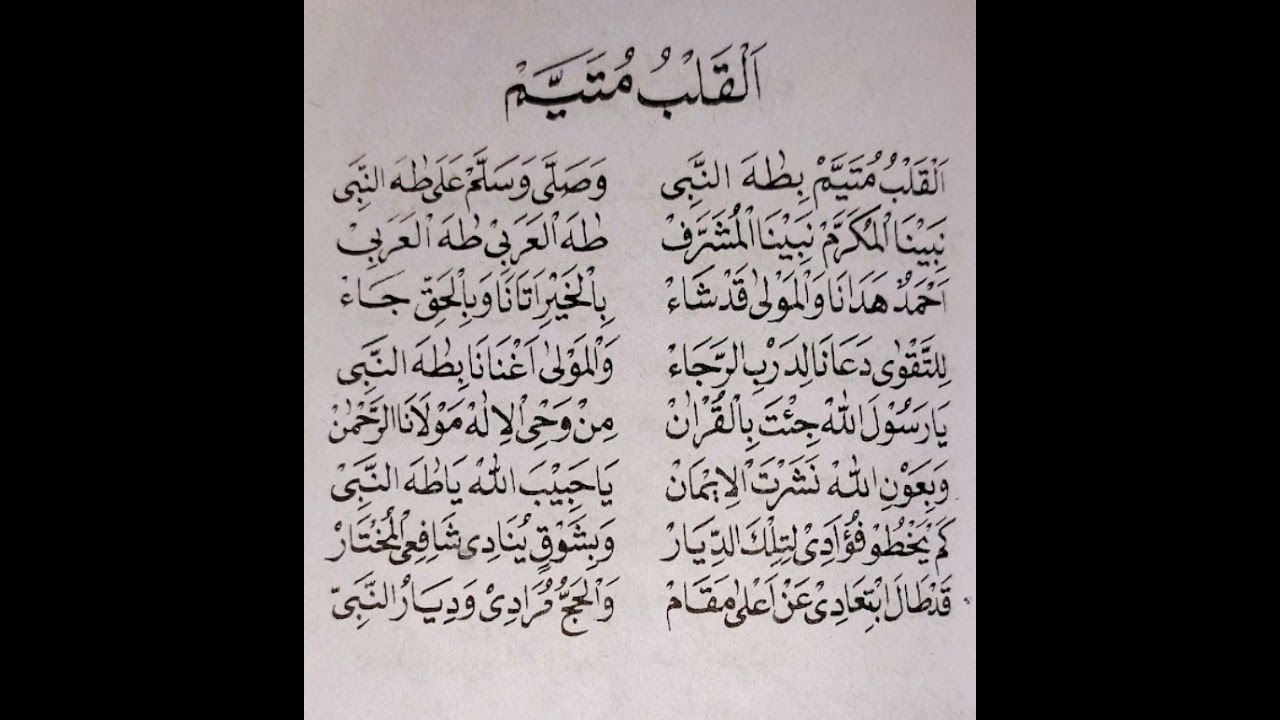 اَلْقَلْبُ مُتَيَّمْ
اَلْقَلْبُ مُتَيَّمْ بِطٰهَ النَّبِى وَصَلَّى وَسَلَّمْ عَلَى طٰهَ النَّبِى
نَبِيْنَا الْمُكَرَّمْ نَبِيْنَا الْمُشَرَّفْ طٰهَ الْعَرَبِيْ طٰهَ الْعَرَبِيْ
اَحْمَدٌ هَدَانَا وَالْمَوْلٰى قَدْ شَاءْ بِالْخَيْرِ اَتَانَا وَبِالْحَقِّ جَاءْ
لِلتَّقْوٰى دَعَانَا لِدَرْبِ الرَّجَاءْ وَالْمَوْلٰى اَغْنَانَا بِطٰهَ النَّبِى
يَا رَسُوْلَ اللهْ جِئْتَ بِالْقُرْاٰنْ مِنْ وَحْيِ الْاِلٰهْ مَوْلَانَا الرَّحْمٰنْ
وَبِعَوْنِ اللهْ نَشَرْتَ الْاِيْمَانْ يَا حَبِيْبَ اللهْ يَا طٰهَ النَّبِىْ
كَمْ يَخْطُوْ فُؤَادِىْ لِتِلْكَ الدِّيَارْ وَبِشَوْقٍ يُنَادِى شَافِعِى الْمُخْتَارْ
قَدْ طَالَ ابْتِعَادِىْ عَنْ اَعْلٰى مَقَامْ وَالْحَجُّ مُرَادِىْ وَدِيَارُ النَّبِىّ